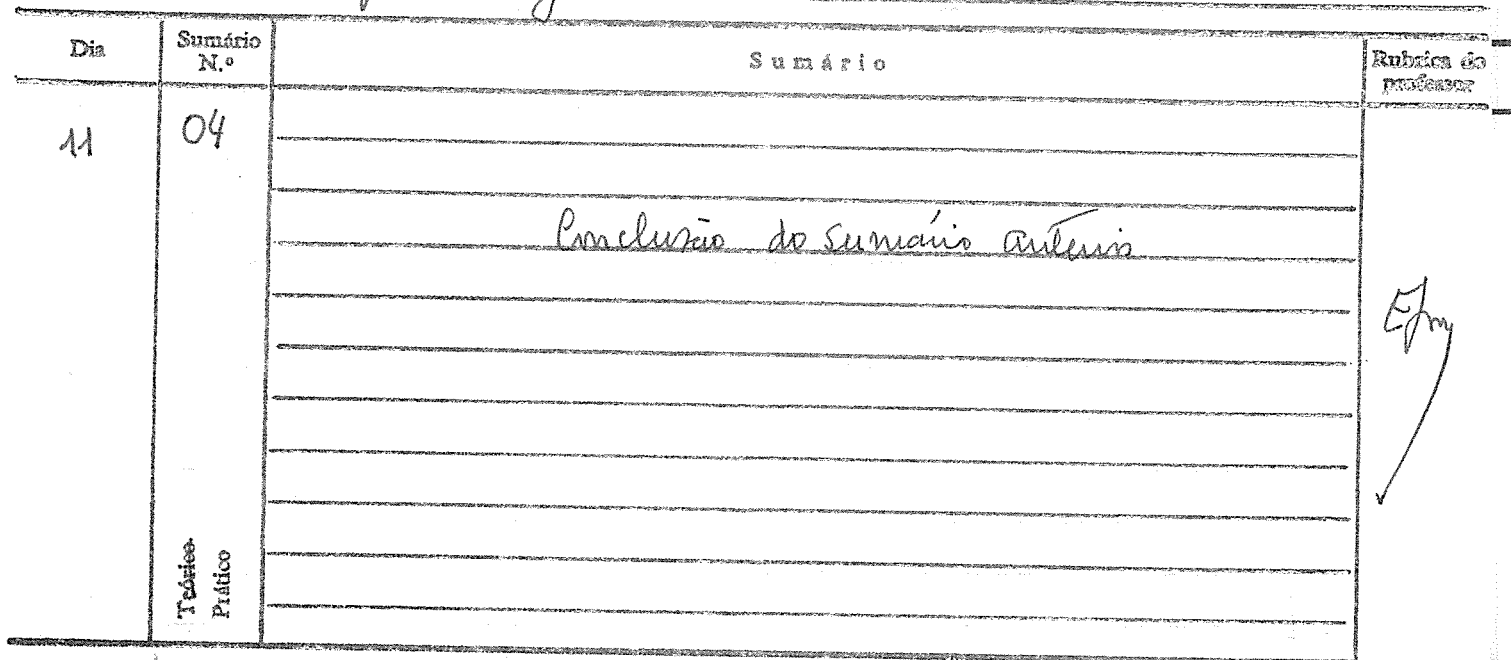 Dia
Sumário
N.º
Sumário
Rubrica do
professor
11
04
Conclusão do sumário anterior
Teórico
Prático